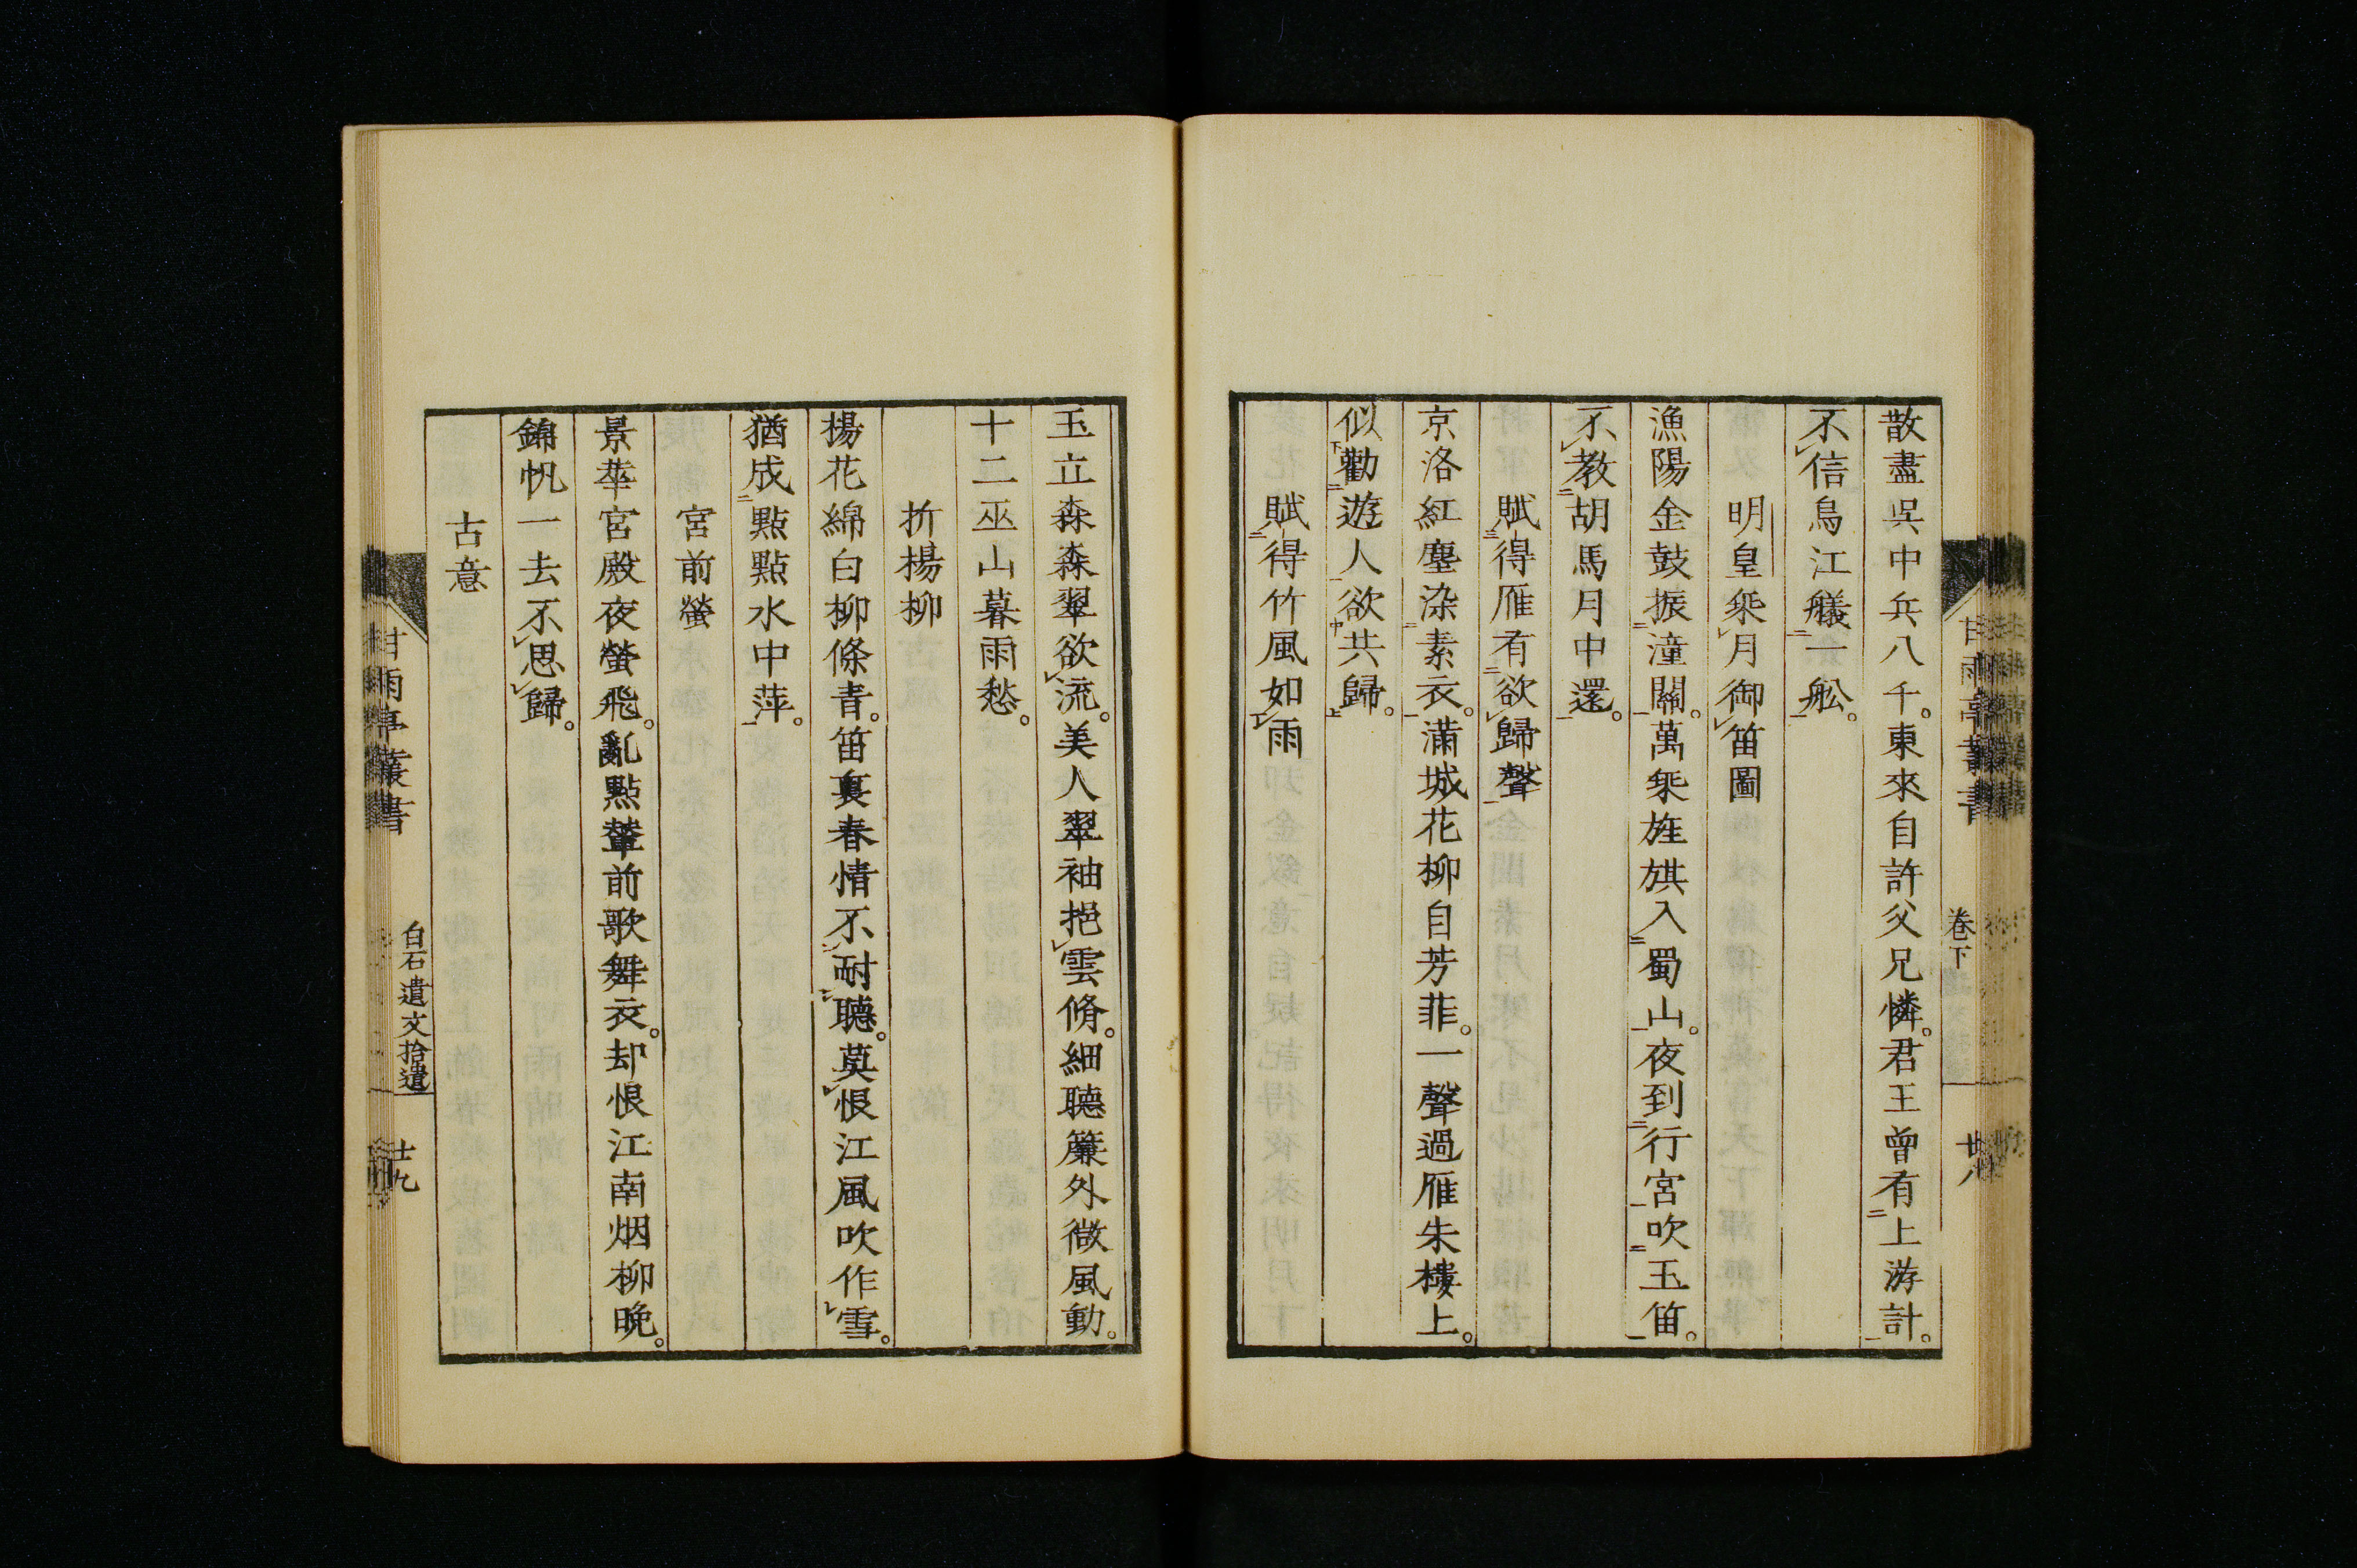 散盡吳中兵八千。東來自許父兄憐。君王曾有上游計。
不信烏江艤一舩。
明皇椉月御笛圖
漁陽金鼓振潼關。萬椉旌旗入蜀山。夜到行宮吹玉笛。
不教胡馬月中還。
賦得雁有欲歸聲
京洛紅塵染素衣。滿城花柳自芳菲。一聲過雁朱樓上。
似勸遊人欲共歸。
賦得竹風如雨
甘雨亭叢書
卷下
廿八
玉立森森翠欲流。美人翠袖挹雲脩。細聽簾外微風動。
十二巫山暮雨愁。
折楊柳
楊花綿白柳條青。笛裏春情不耐聽。莫恨江風吹作雪。
猶成點點水中萍。
宮前螢
景華宮殿夜螢飛。亂點輦前歌舞衣。却恨江南烟柳晚。
錦帆一去不思歸。
古意
甘雨亭叢書
白石遺文拾遺
廿九